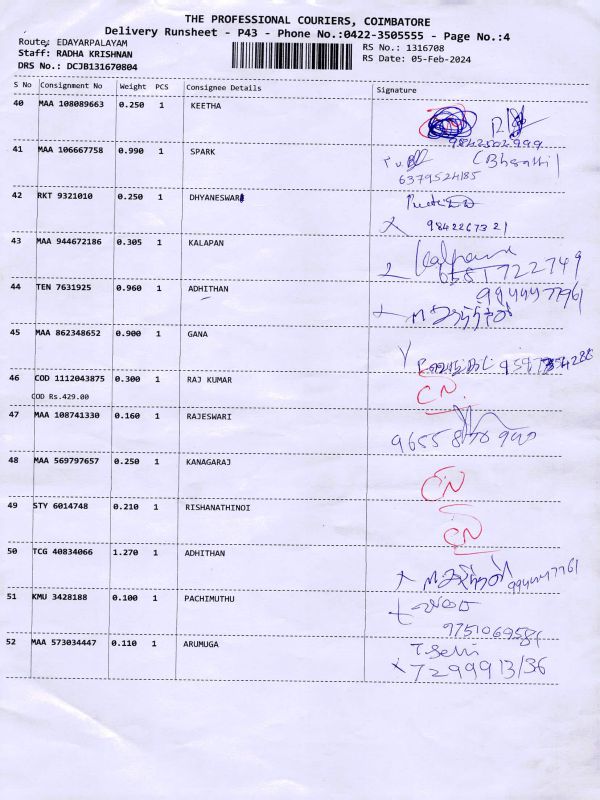 THE PROFESSIONAL COURIERS, COIMBATORE
Delivery Runsheet - P43 - Phone No.:0422-3505555 - Page No.:4
Route: EDAYARPALAYAM
Staff: RADHA KRISHNAN
DRS No.: DCJB131670804
RS No.: 1316708
RS Date: 05-Feb-2024
S No Consignment No Weight PCS Consignee Details Signature
40 MAA 108089663 0.250 1 KEETHA
9842502999
41 MAA 106667758 0.990 1 SPARK
(Bharathi)
6379524185
42 RKT 9321010 0.250 1 DHYANESWAR
9842267321
43 MAA 944672186 0.305 1 KALAPAN
Kalpana
6381722749
44 TEN 7631925 0.960 1 ADHITHAN
9944477961
45 MAA 862348652 0.900 1 GANA
46 COD 1112043875 0.300 1 RAJ KUMAR
CN
COD Rs.429.00
47 MAA 108741330 0.160 1 RAJESWARI
48 MAA 569797657 0.250 1 KANAGARAJ
CN
49 STY 6014748 0.210 1 RISHANATHINOI
CN
50 TCG 40834066 1.270 1 ADHITHAN
9944477961
51 KMU 3428188 0.100 1 PACHIMUTHU
9751069581
52 MAA 573034447 0.110 1 ARUMUGA
T. Selvi
7299913136